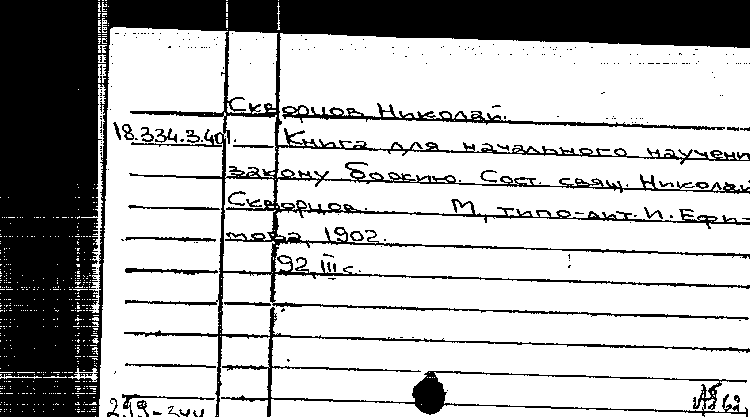 Скворцов, Николай.
18.334.3.401. Книга для начального научени
закону божию. Сост. свящ. Николай
Скворцов. М, типо-лит. И. Ефи-
мова, 1902.
92, III с.